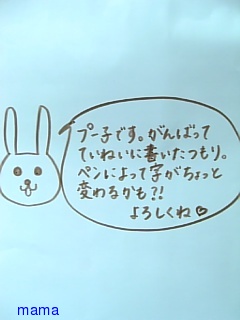 プー子です。がんばって
ていねいに書いたつもり。
ペンによって字がちょっと
変わるかも?!
よろしくね♡
mama